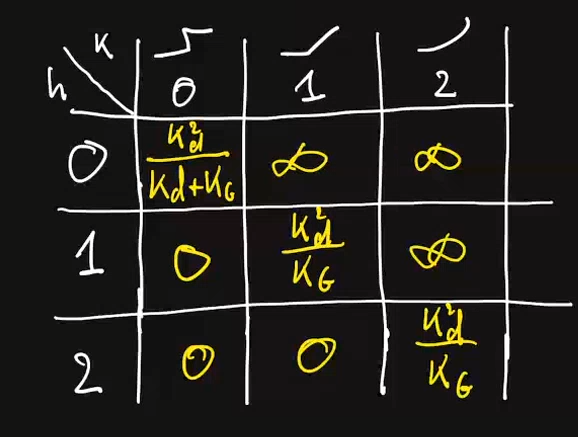 K
h 0 1 2
0 K_d^2/(K_d+K_G) ∞ ∞
1 0 K_d^2/K_G ∞
2 0 0 K_d^2/K_G